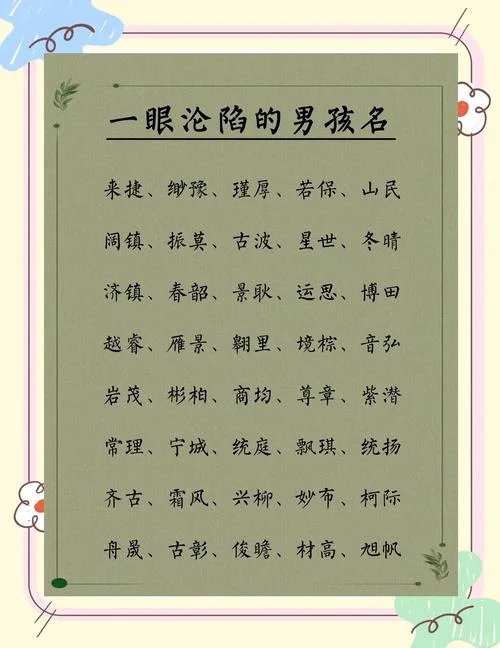 一眼沦陷的男孩名
来捷、缈豫、瑾厚、若保、山民
阔镇、振莫、古波、星世、冬晴
济镇、春韶、景耿、运思、博田
越睿、雁景、翱里、境棕、音弘
岩茂、彬柏、商均、尊章、紫潜
常理、宁城、统庭、飘琪、统扬
齐古、霜风、兴柳、妙布、柯际
舟晟、古彰、俊瞻、材高、旭帆